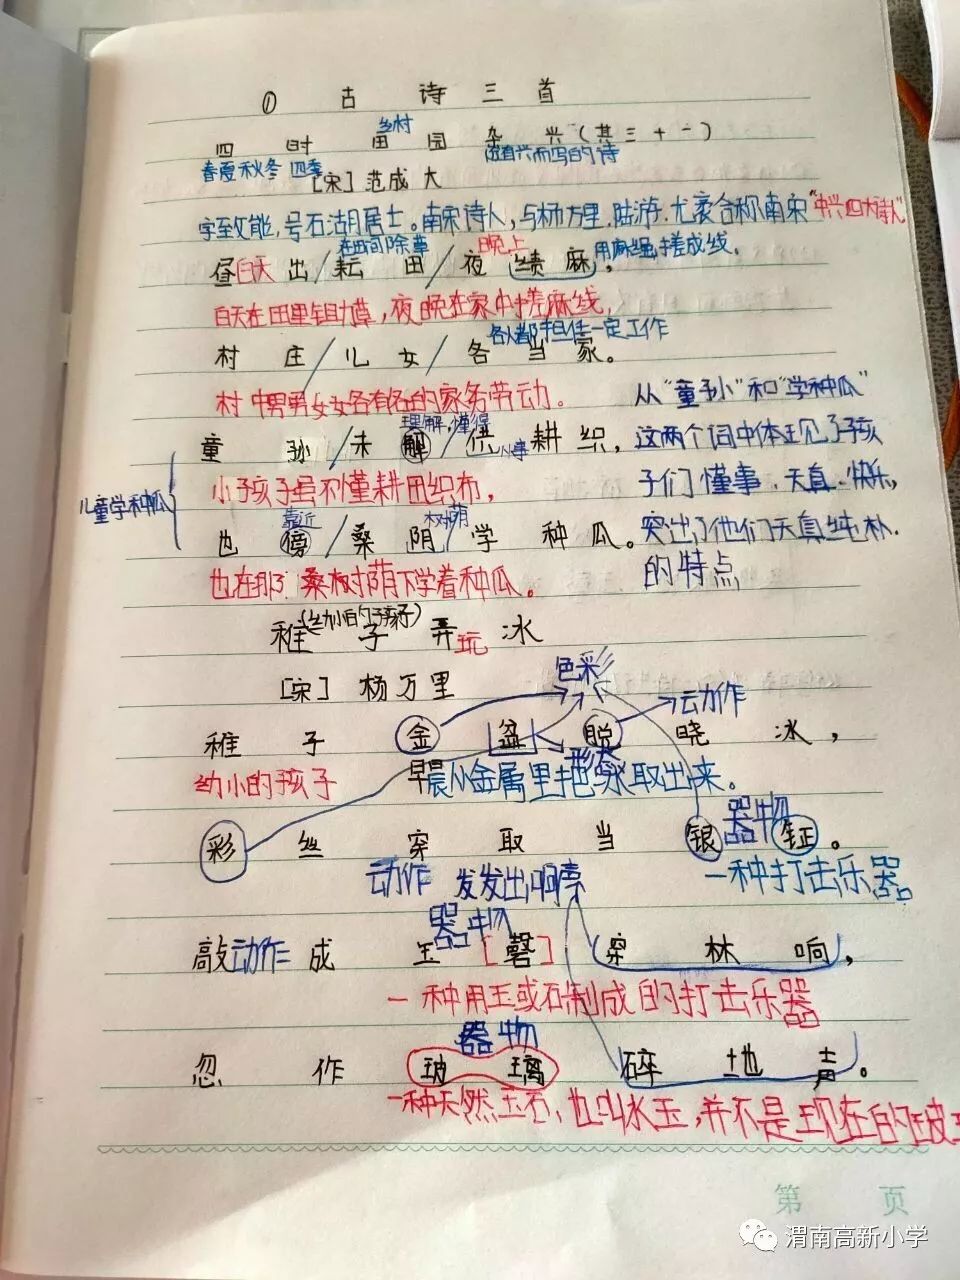 ① 古诗三首
乡村
四时田园杂兴(其三十一)
春夏秋冬 四季
随着兴而写的诗
[宋]范成大
字至能,号石湖居士。南宋诗人,与杨万里.陆游.尤袤合称南宋"中兴四大诗人"
在田间除草 晚上 用麻绳搓成线。
昼白天出/耘田/夜绩麻,
白天在田里锄草,夜晚在家中搓麻线,
各人都担任一定工作
村庄/儿女/各当家。
村中男男女女各有各的家务劳动。
从"童孙"和"学种瓜"
理解,懂得
童孙/未解/供从事耕织,
这两个词中体现了孩
小孩子虽不懂耕田织布,
子们懂事.天真.快乐,
儿童学种瓜
靠近 树荫
也傍/桑阴/学种瓜。
突出了他们天真纯朴.
的特点
也在那 桑树荫下学着种瓜。
(幼小的孩子)
稚子弄玩冰
[宋]杨万里
色彩
动作
稚子金盆脱晓冰,
形态
幼小的孩子
早晨从金属里把冰取出来。
器物
彩丝穿取当银钲。
动作
一种打击乐器。
发发出响亮
器物
敲动作成玉[磬]穿林响,
一种用玉或石制成的打击乐器
器物
忽作玻璃碎地声。
一种天然玉石,也叫水玉,并不是现在的玻
第 页
渭南高新小学